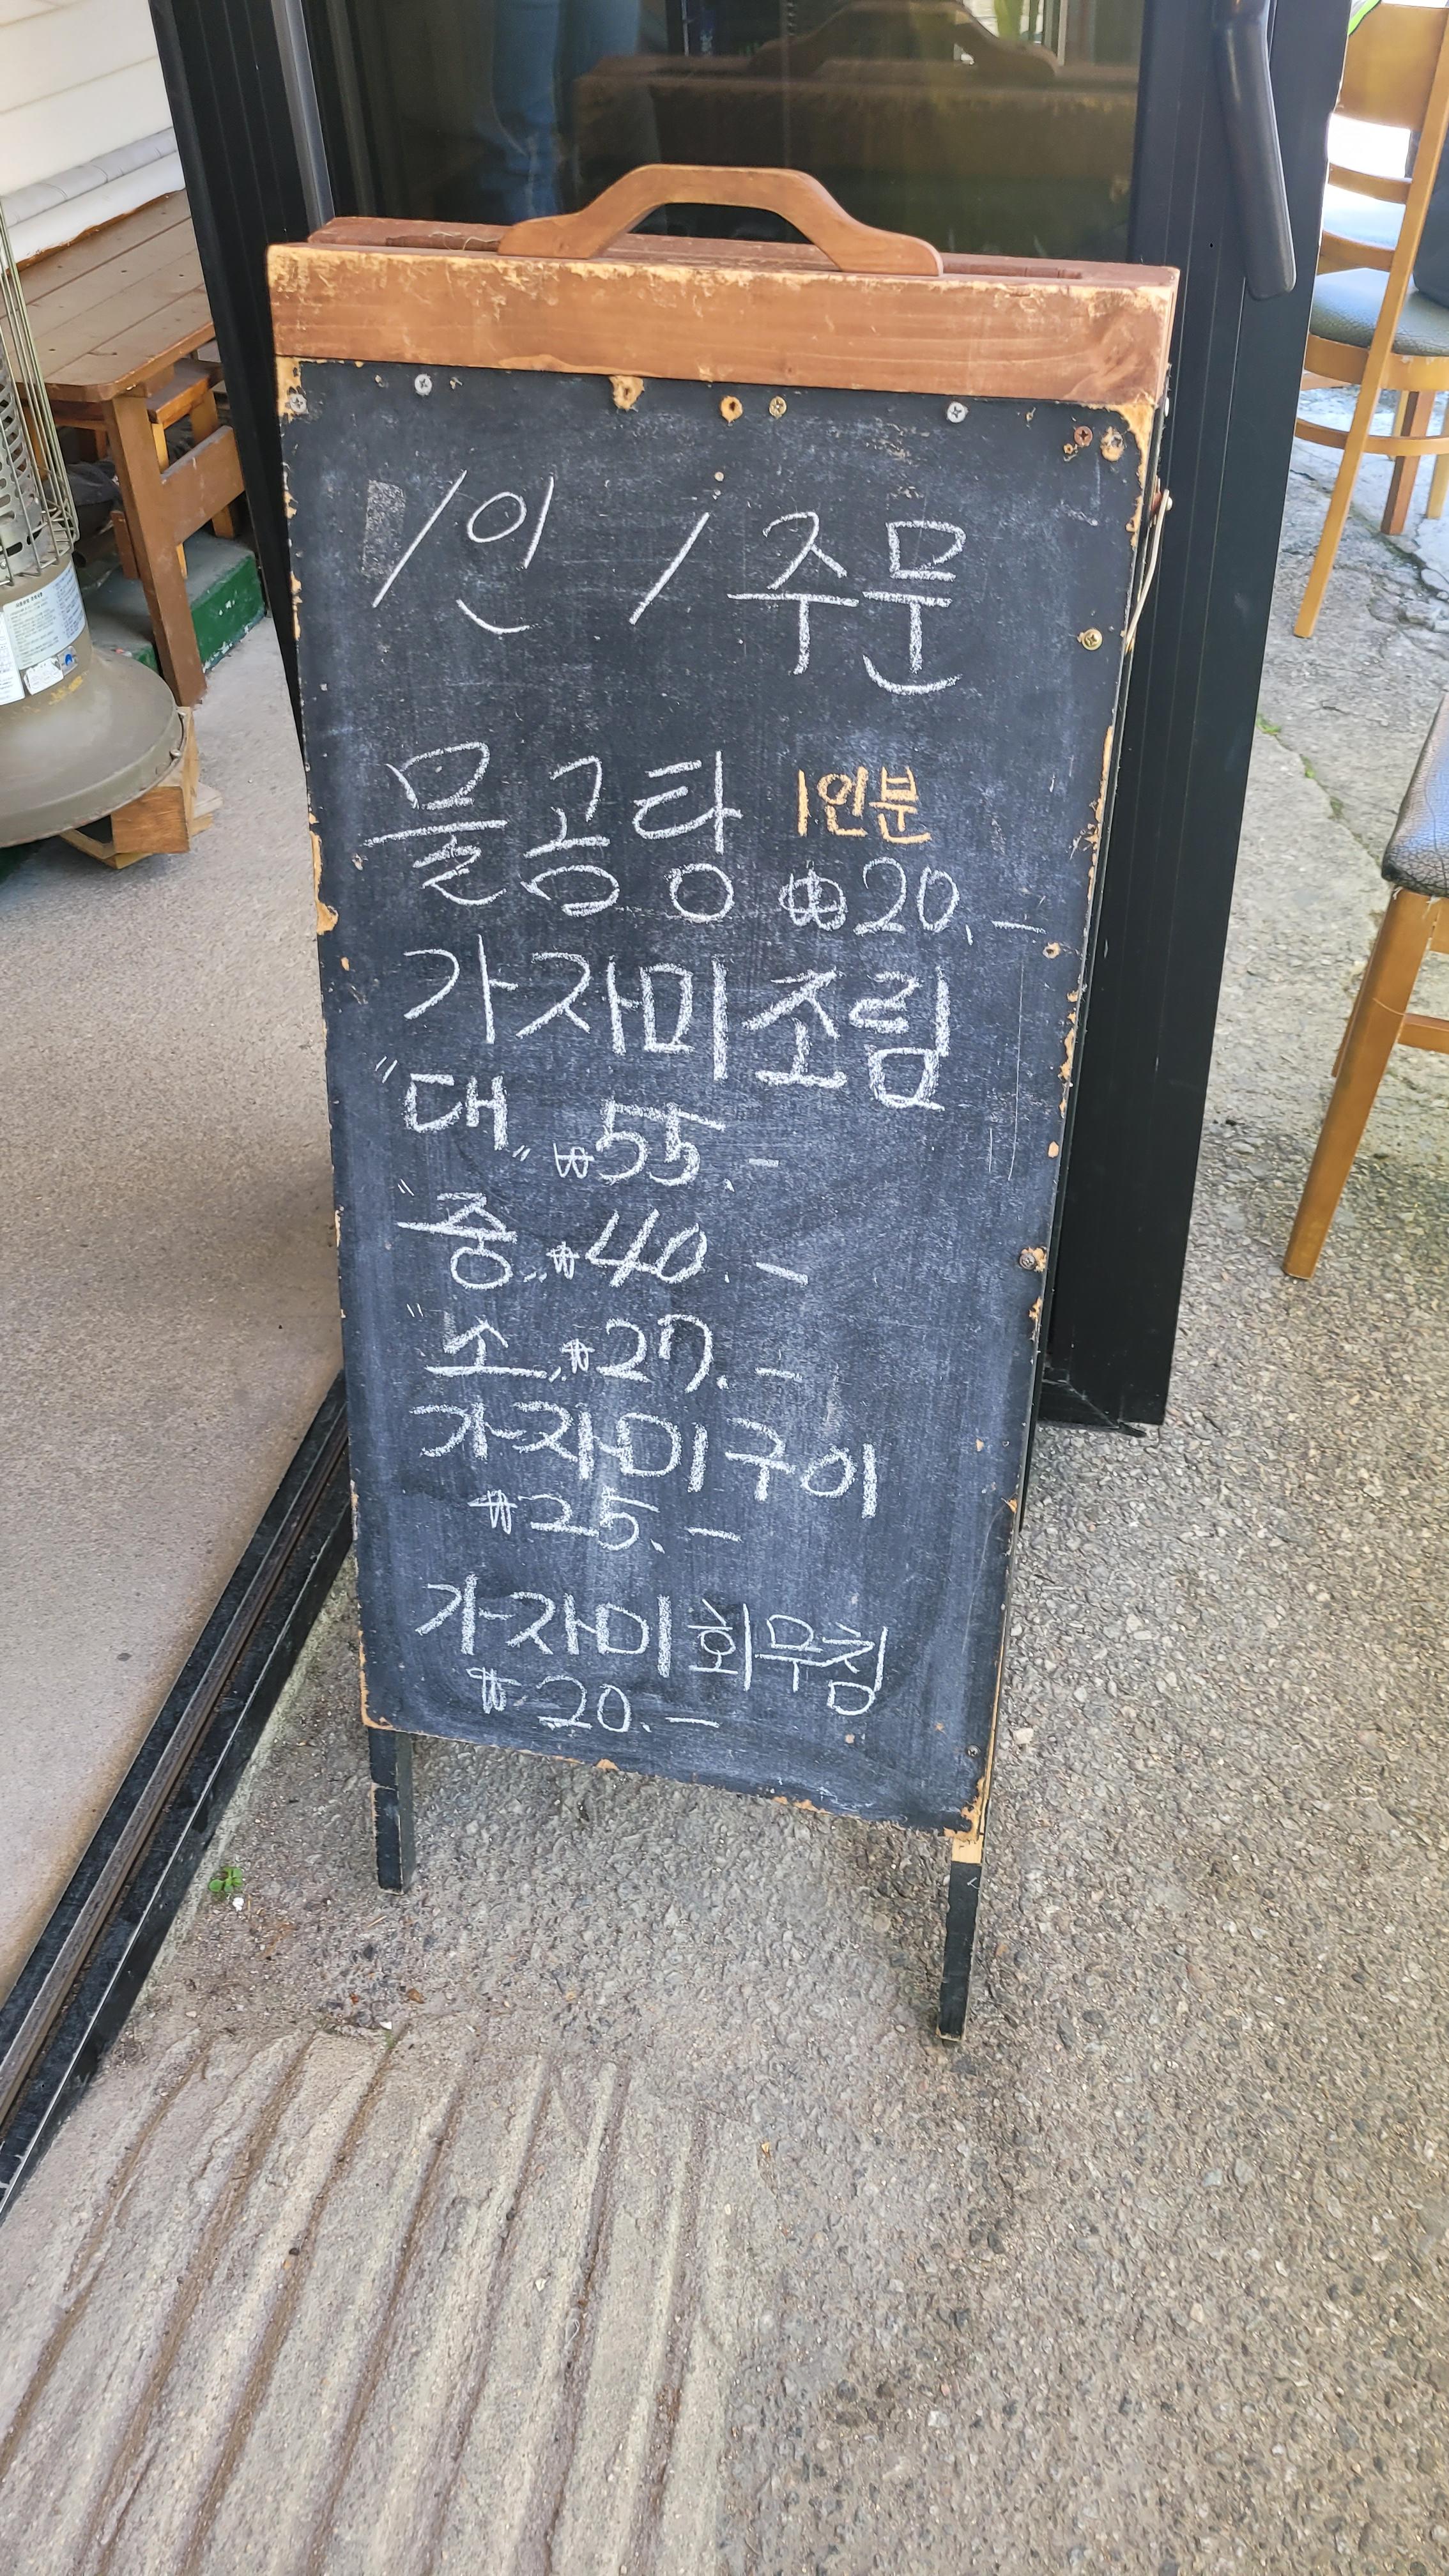 1인 1 주문
물곰탕 1인분
₩20,-
가자미조림
"대" ₩55.-
"중" ₩40.-
"소" ₩27.-
가자미구이
₩25.-
가자미회무침
₩20.-